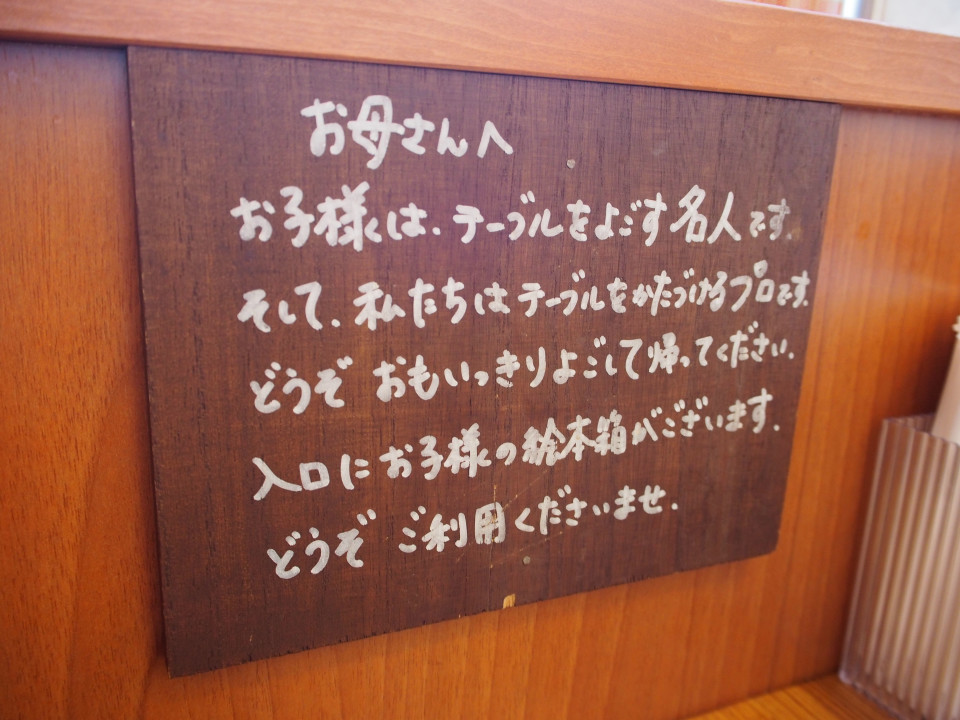 お母さんへ
お子様は、テーブルをよごす名人です。
そして、私たちはテーブルをかたづけるプロです。
どうぞ おもいっきりよごして帰ってください。
入口にお子様の絵本箱がございます。
どうぞ ご利用くださいませ。